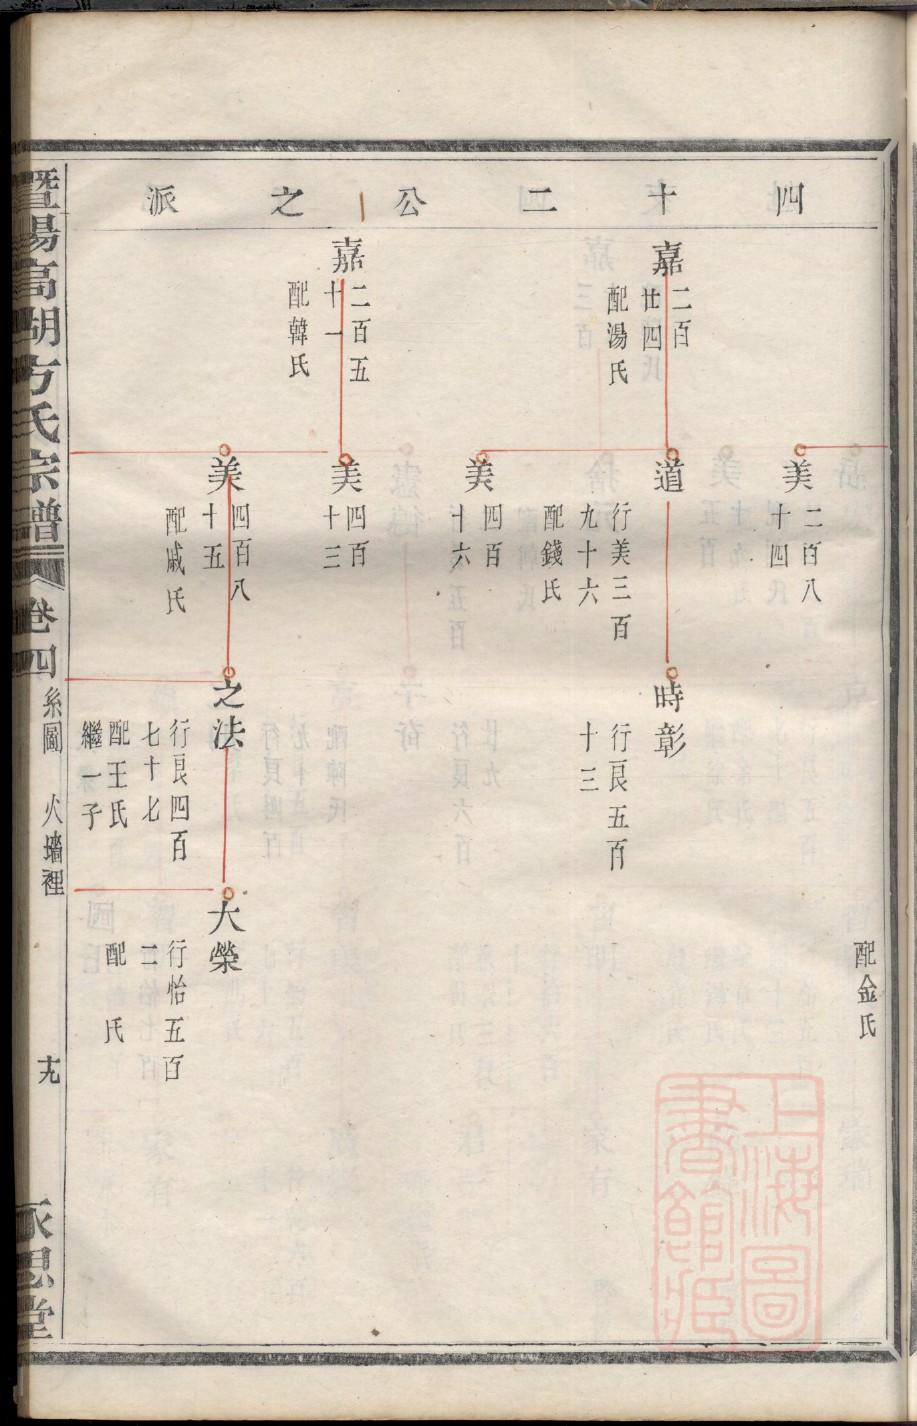 四十二公之派
配金氏
美
二百八
十四
嘉
二百
廿四
配湯氏
道
行美三百
九十六
配錢氏
時彰
行良五百
十三
美
四百
十六
嘉
二百五
十一
配韓氏
美
四百
十三
美
四百八
十五
配戚氏
之法
行良四百
七十七
配王氏
繼一子
大榮
行怡五百
二
配 氏
暨陽高湖方氏宗譜
卷四
系圖 火墻裡
十九
永思堂
上海圖
書館藏